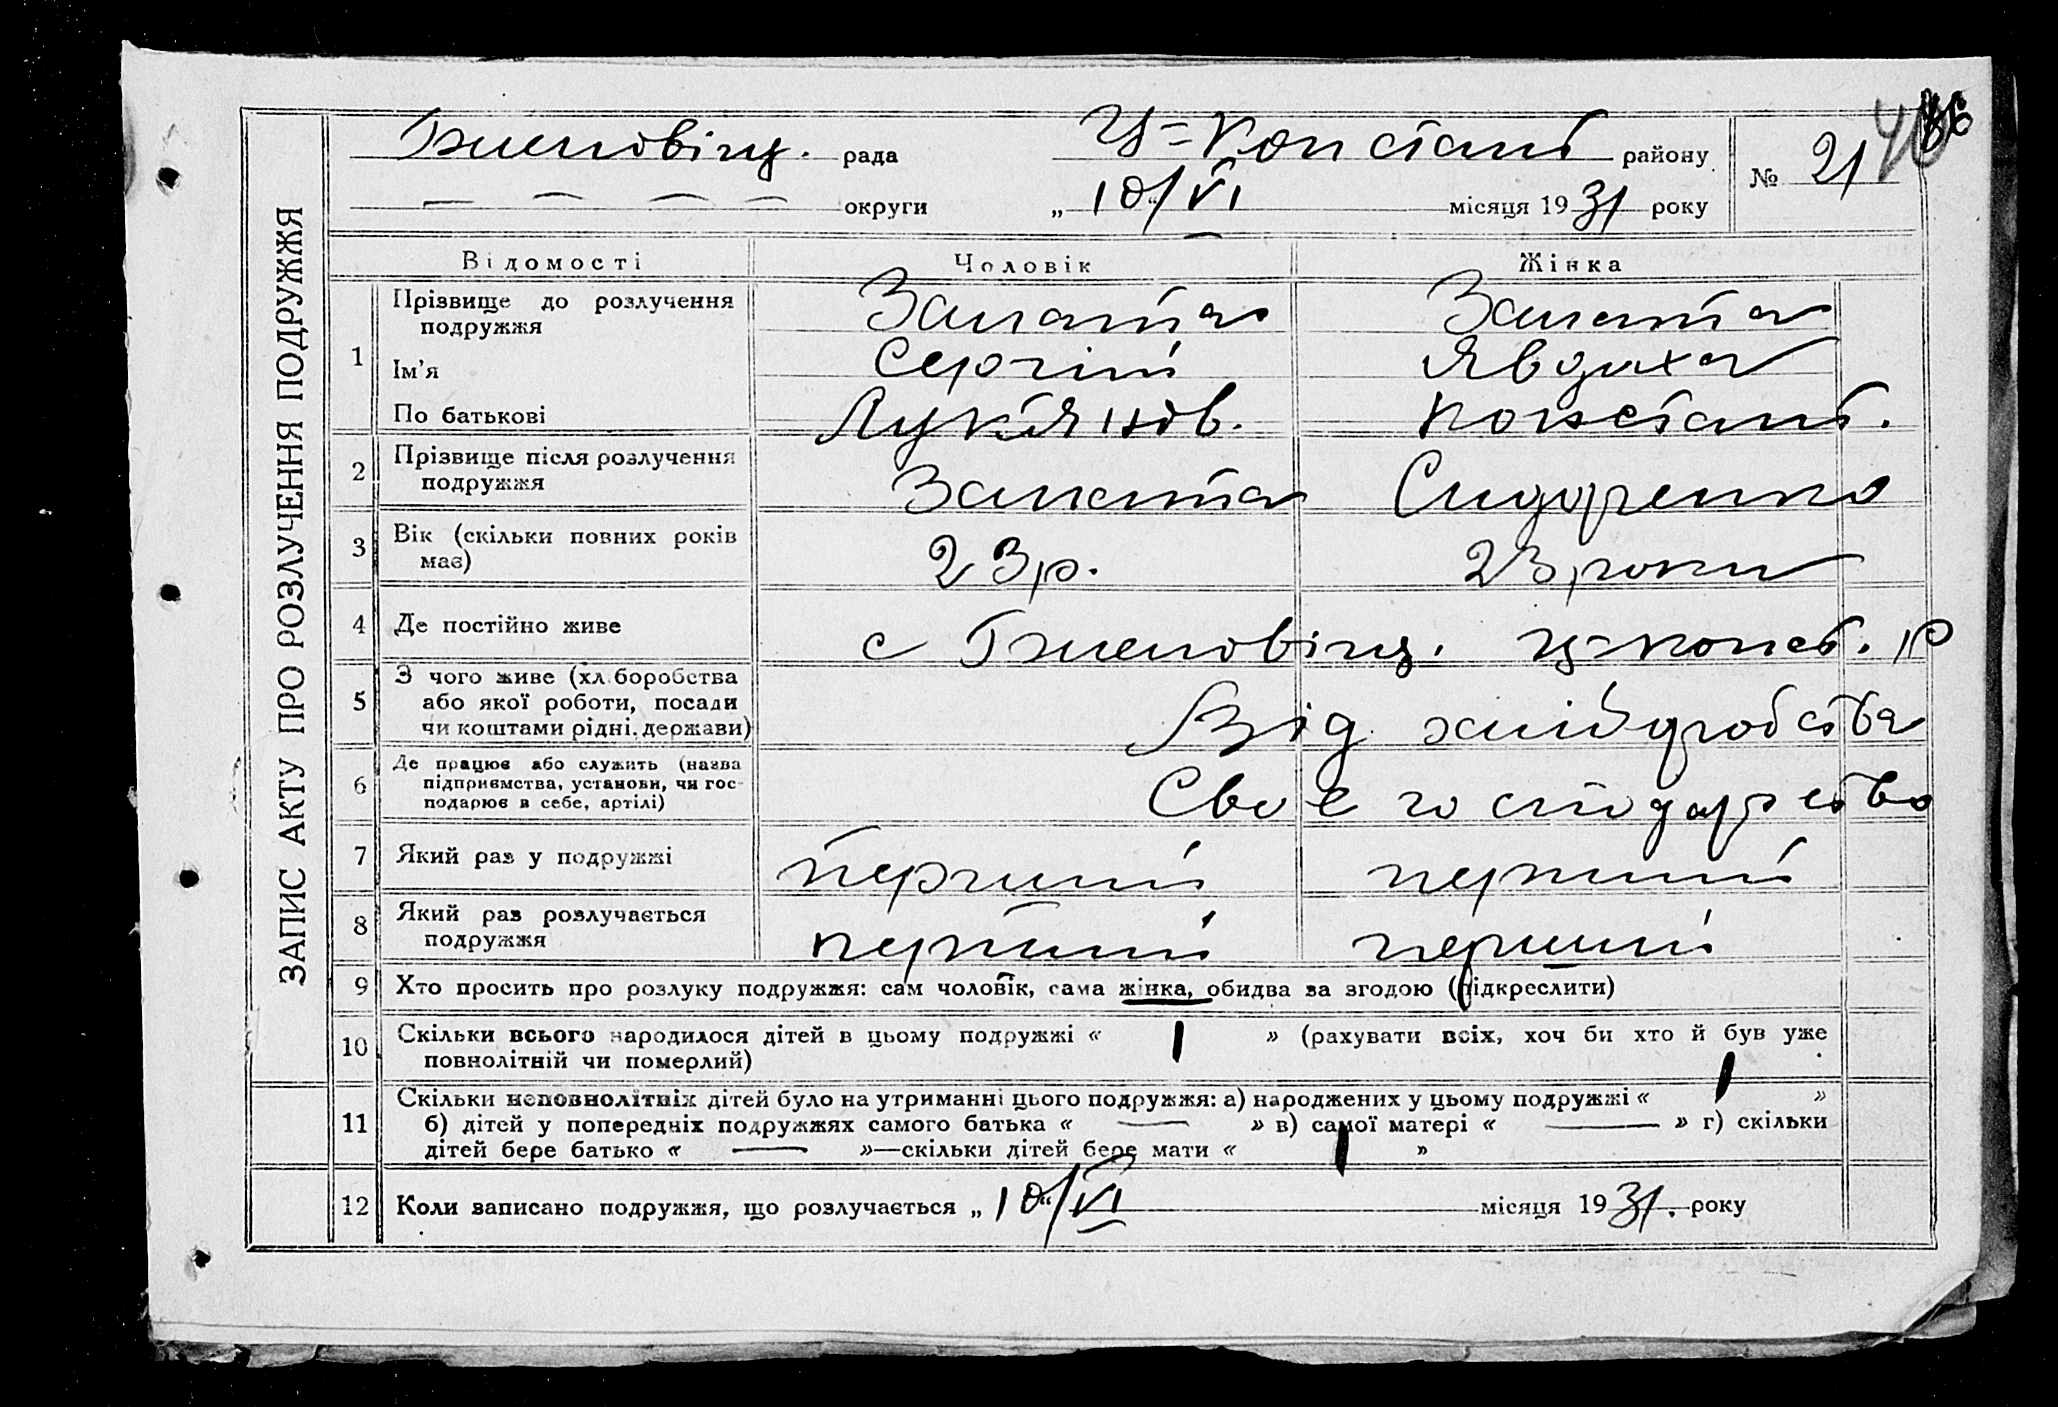 ЗАПИС АКТУ ПРО РОЗЛУЧЕННЯ ПОДРУЖЖЯ
рада
Ц=Констант району
№ 21
округи
„ 10/VI місяця 1931 року
Відомості
Чоловік
Жінка
1
Прізвище до розлучення подружжя
Залата
Залата
Ім'я
Сергій
Явдоха
По батькові
Лук'янов.
Констант.
2
Прізвище після розлучення подружжя
Залата
Сидоренко
3
Вік (скільки повних років має)
23 р.
23 роки
4
Де постійно живе
с ц=конст. р
5
З чого живе (хл.боробства або якої роботи, посади чи коштами рідні. держави)
Від хлібороб ства
6
Де працює або служить (назва підприємства, установи, чи господарює в себе, артілі)
Своє господарство
7
Який раз у подружжі
перший
перший
8
Який раз розлучається подружжя
перший
перший
9
Хто просить про розлуку подружжя: сам чоловік, сама жінка, обидва за згодою (підкреслити)
10
Скільки всього народилося дітей в цьому подружжі « 1 » (рахувати всіх, хоч би хто й був уже
повнолітній чи померлий)
11
Скільки неповнолітніх дітей було на утриманні цього подружжя: а) народжених у цьому подружжі « 1 »
б) дітей у попередніх подружжях самого батька « — » в) самої матері « — » г) скільки
дітей бере батько « — »—скільки дітей бере мати « 1 »
12
Коли записано подружжя, що розлучається „ 10/VI місяця 1931. року